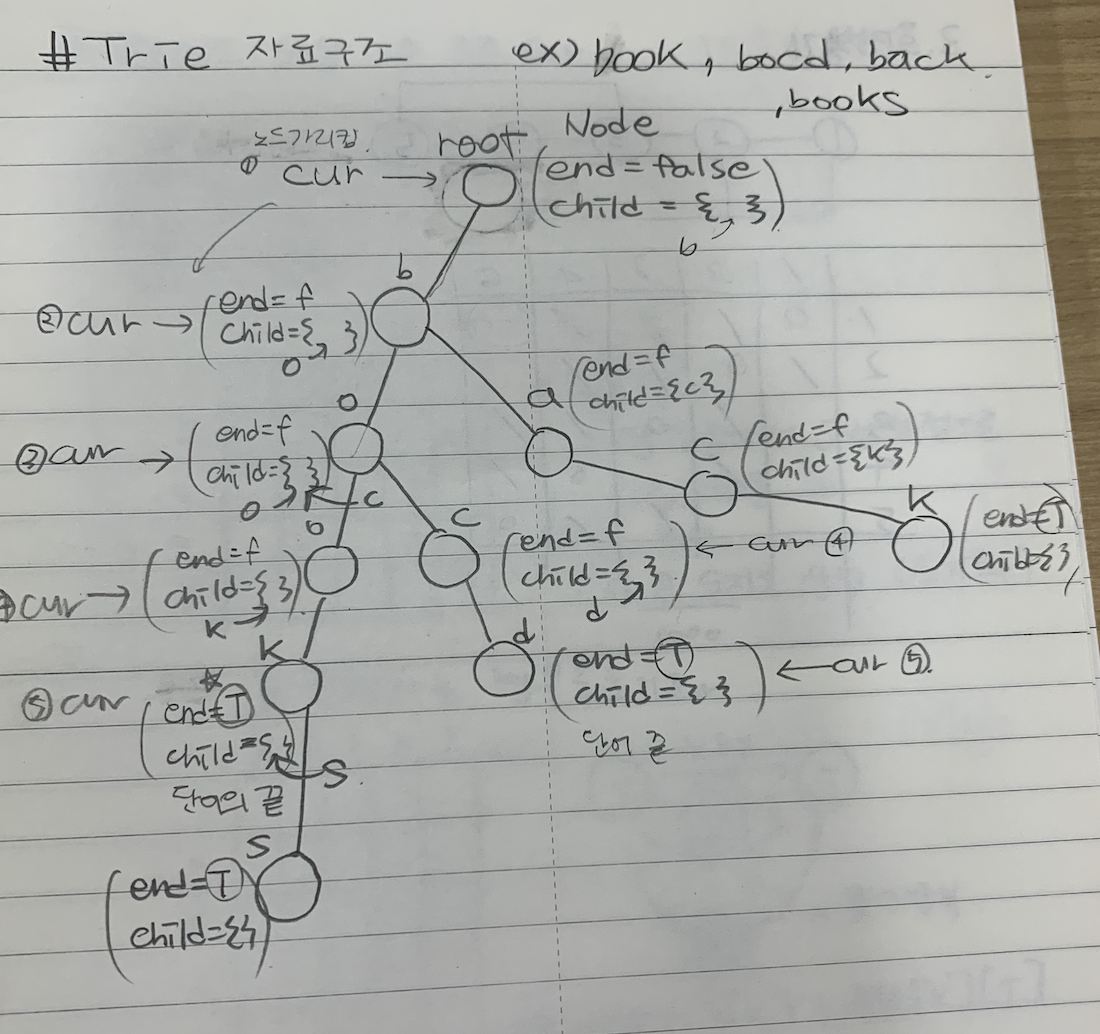 # Trie 자료구조 ex) book, bocd, back
, books
노드가리킴.
① cur → root Node
(end = false
child = {, })
b
b
② cur → (end = f
child = {, })
o
a (end = f
child = {c})
o
② cur → (end = f
child = { })
o c
c (end = f
child = {k})
k (end = T
child = {})
o
④ cur → (end = f
child = { })
k
c (end = f
child = {, }) ← cur ④
d
k
d (end = T
child = { }) ← cur ⑤.
단어 끝
⑤ cur
(end = T
child = {,}
s.
단어의 끝
s
(end = T
child = {})